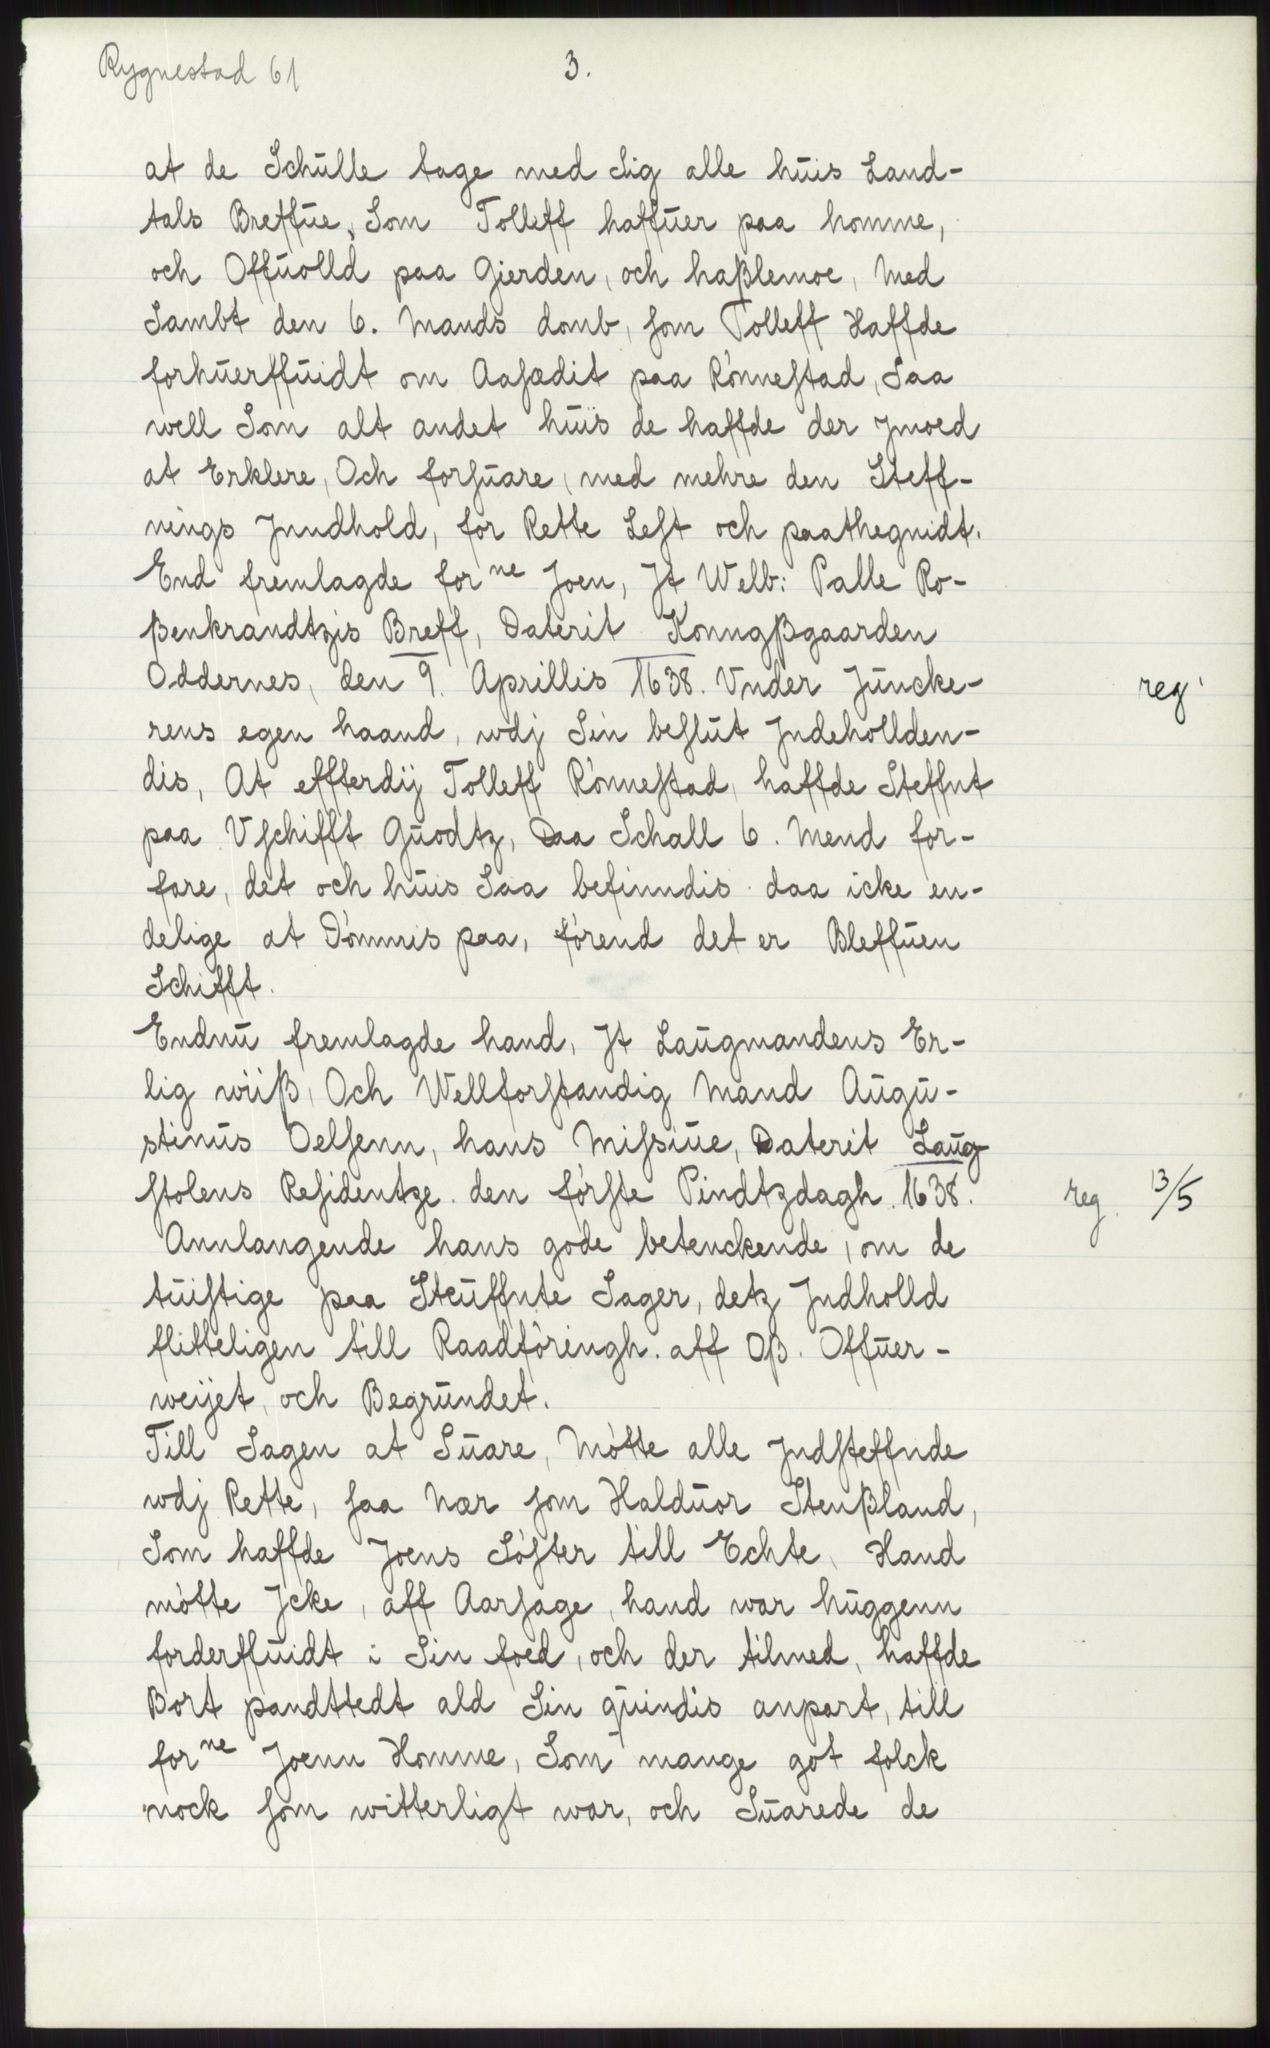 Rygnestad 61
3.
at de Schulle tage med Sig alle huis Land-
tals Breffue, Som Tolleff haffuer paa homme,
och Offuolld paa Gierden, och haßlemoe, Med
Sambt den 6. Mands domb, som Tolleff Haffde
forhuerffuidt om Aasædit paa Rónnestad, Saa
well Som alt andet huis de haffde der jmoed
at Erklere, Och forsuare, med mehre den Steff-
nings Jnndhold, for Rette Lest och paathegnidt.
End fremlagde for ne Joen, Jt Welb: Palle Ro-
ßenkrandtzis Breff, Daterit Konngßgaarden
Oddernes, den 9. Aprillis 1638. Vnder Juncke-
reg
rens egen haand, wdj Sin beslut Jndehollden-
dis, At effterdij Tolleff Rónnestad, haffde Steffnt
paa Vschifft Guodtz, Daa Schall 6. Mend for-
fare, det och huis Saa befinndis daa icke en-
delige at Dómmis paa, fórend det er Bleffuen
Schifft.
Endnu fremlagde hand, Jt Laugmandens Er-
lig wiiß, Och Wellforstandig Mand Augu-
stinus Oelsenn, hans Missiue, Daterit Laug
stolens Residentze den fórste Pindtzdagh 1638.
reg. 13/5
Annlangende hans gode betenckende, om de
tuistige paa Steuffnte Sager, detz Jndholld
flitteligen till Raadfôringh. aff Oß. Offuer-
weijet, och Begrundet.
Till Sagen at Suare, Mótte alle Jndsteffnde
wdj Rette, saa Nær som Halduor Stenßland,
Som haffde Joens Sóster till Echte, Hand
mótte Jcke, aff Aarsage, hand war huggenn
forderffuidt i Sin foed, och der tilmed, haffde
Bort pandttedt ald Sin quindis anpart, till
for ne Joenn Homme, Som mange got folck
nock som witterligt war, och Suarede de